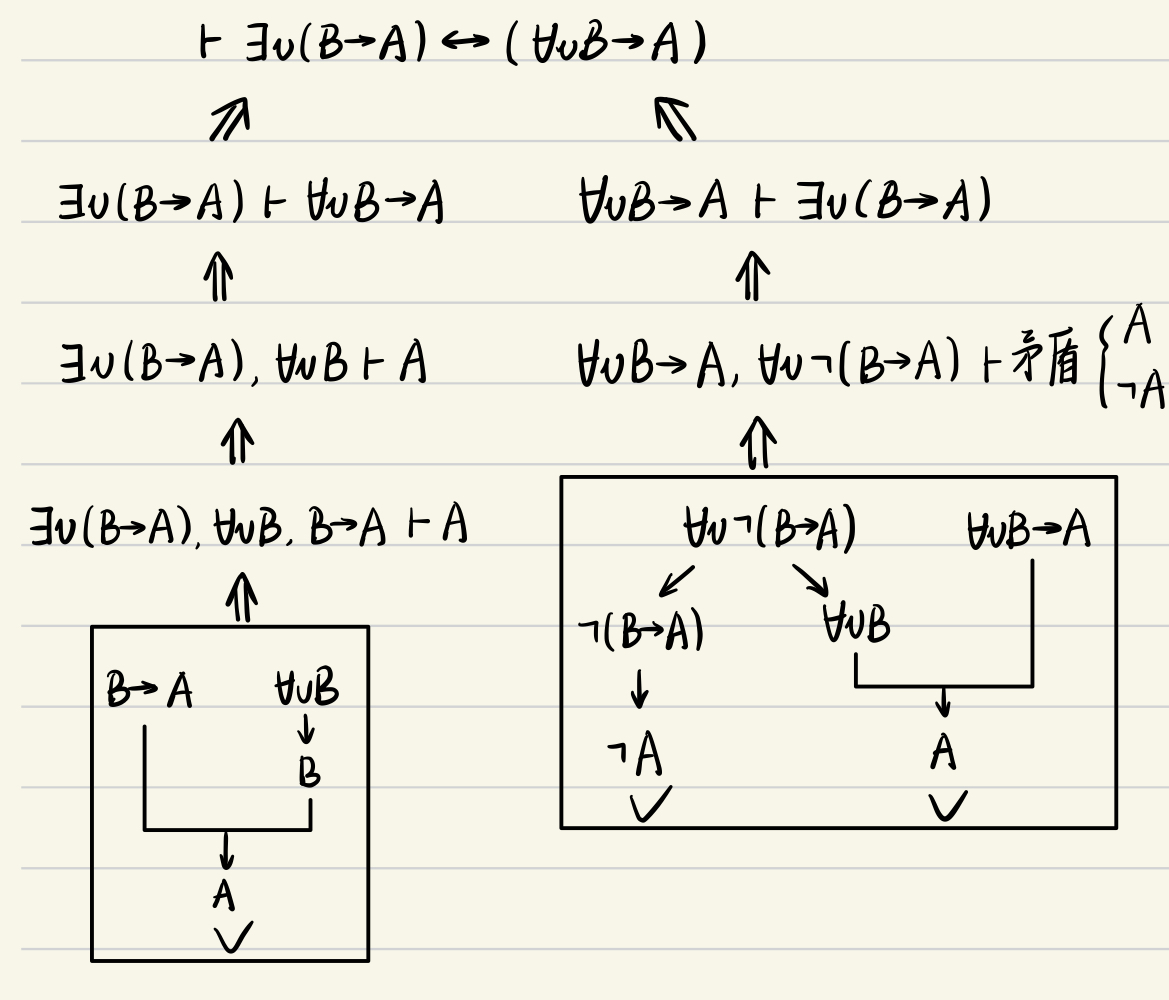 ⊢ ∃v(B→A) ↔ (∀vB→A)
∃v(B→A) ⊢ ∀vB→A
∀vB→A ⊢ ∃v(B→A)
∃v(B→A), ∀vB ⊢ A
∀vB→A, ∀v¬(B→A) ⊢ 矛盾 { A
¬A
∃v(B→A), ∀vB, B→A ⊢ A
B→A ∀vB
B
A
∀v¬(B→A) ∀vB→A
¬(B→A) ∀vB
¬A A